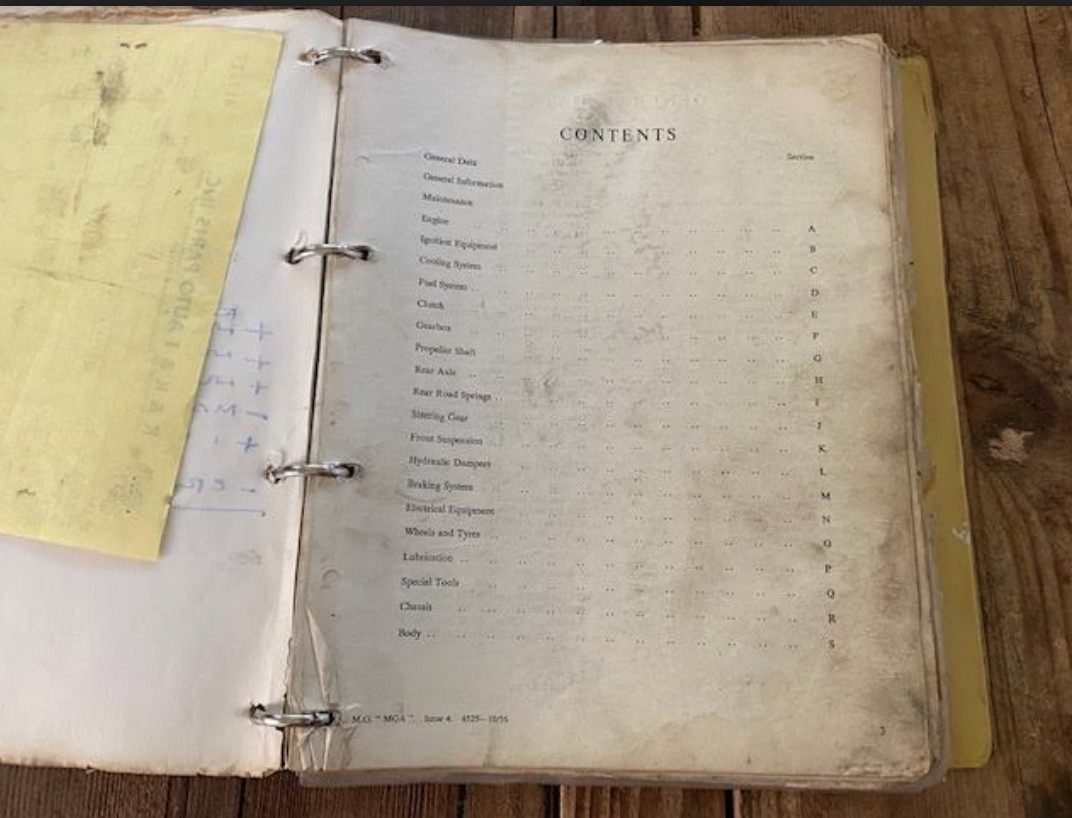 CONTENTS
Section
General Data
General Information
Maintenance
Engine .. .. .. .. .. .. .. .. A
Ignition Equipment .. .. .. .. .. .. .. .. B
Cooling System .. .. .. .. .. .. .. .. C
Fuel System .. .. .. .. .. .. .. .. D
Clutch .. .. .. .. .. .. .. .. E
Gearbox .. .. .. .. .. .. .. .. F
Propeller Shaft .. .. .. .. .. .. .. .. G
Rear Axle .. .. .. .. .. .. .. .. H
Rear Road Springs .. .. .. .. .. .. .. .. I
Steering Gear .. .. .. .. .. .. .. .. J
Front Suspension .. .. .. .. .. .. .. .. K
Hydraulic Dampers .. .. .. .. .. .. .. .. L
Braking System .. .. .. .. .. .. .. .. M
Electrical Equipment .. .. .. .. .. .. .. .. N
Wheels and Tyres .. .. .. .. .. .. .. .. O
Lubrication .. .. .. .. .. .. .. .. P
Special Tools .. .. .. .. .. .. .. .. Q
Chassis .. .. .. .. .. .. .. .. R
Body .. .. .. .. .. .. .. .. S
M.G. "MGA". Issue 4. 4525—10/56
3